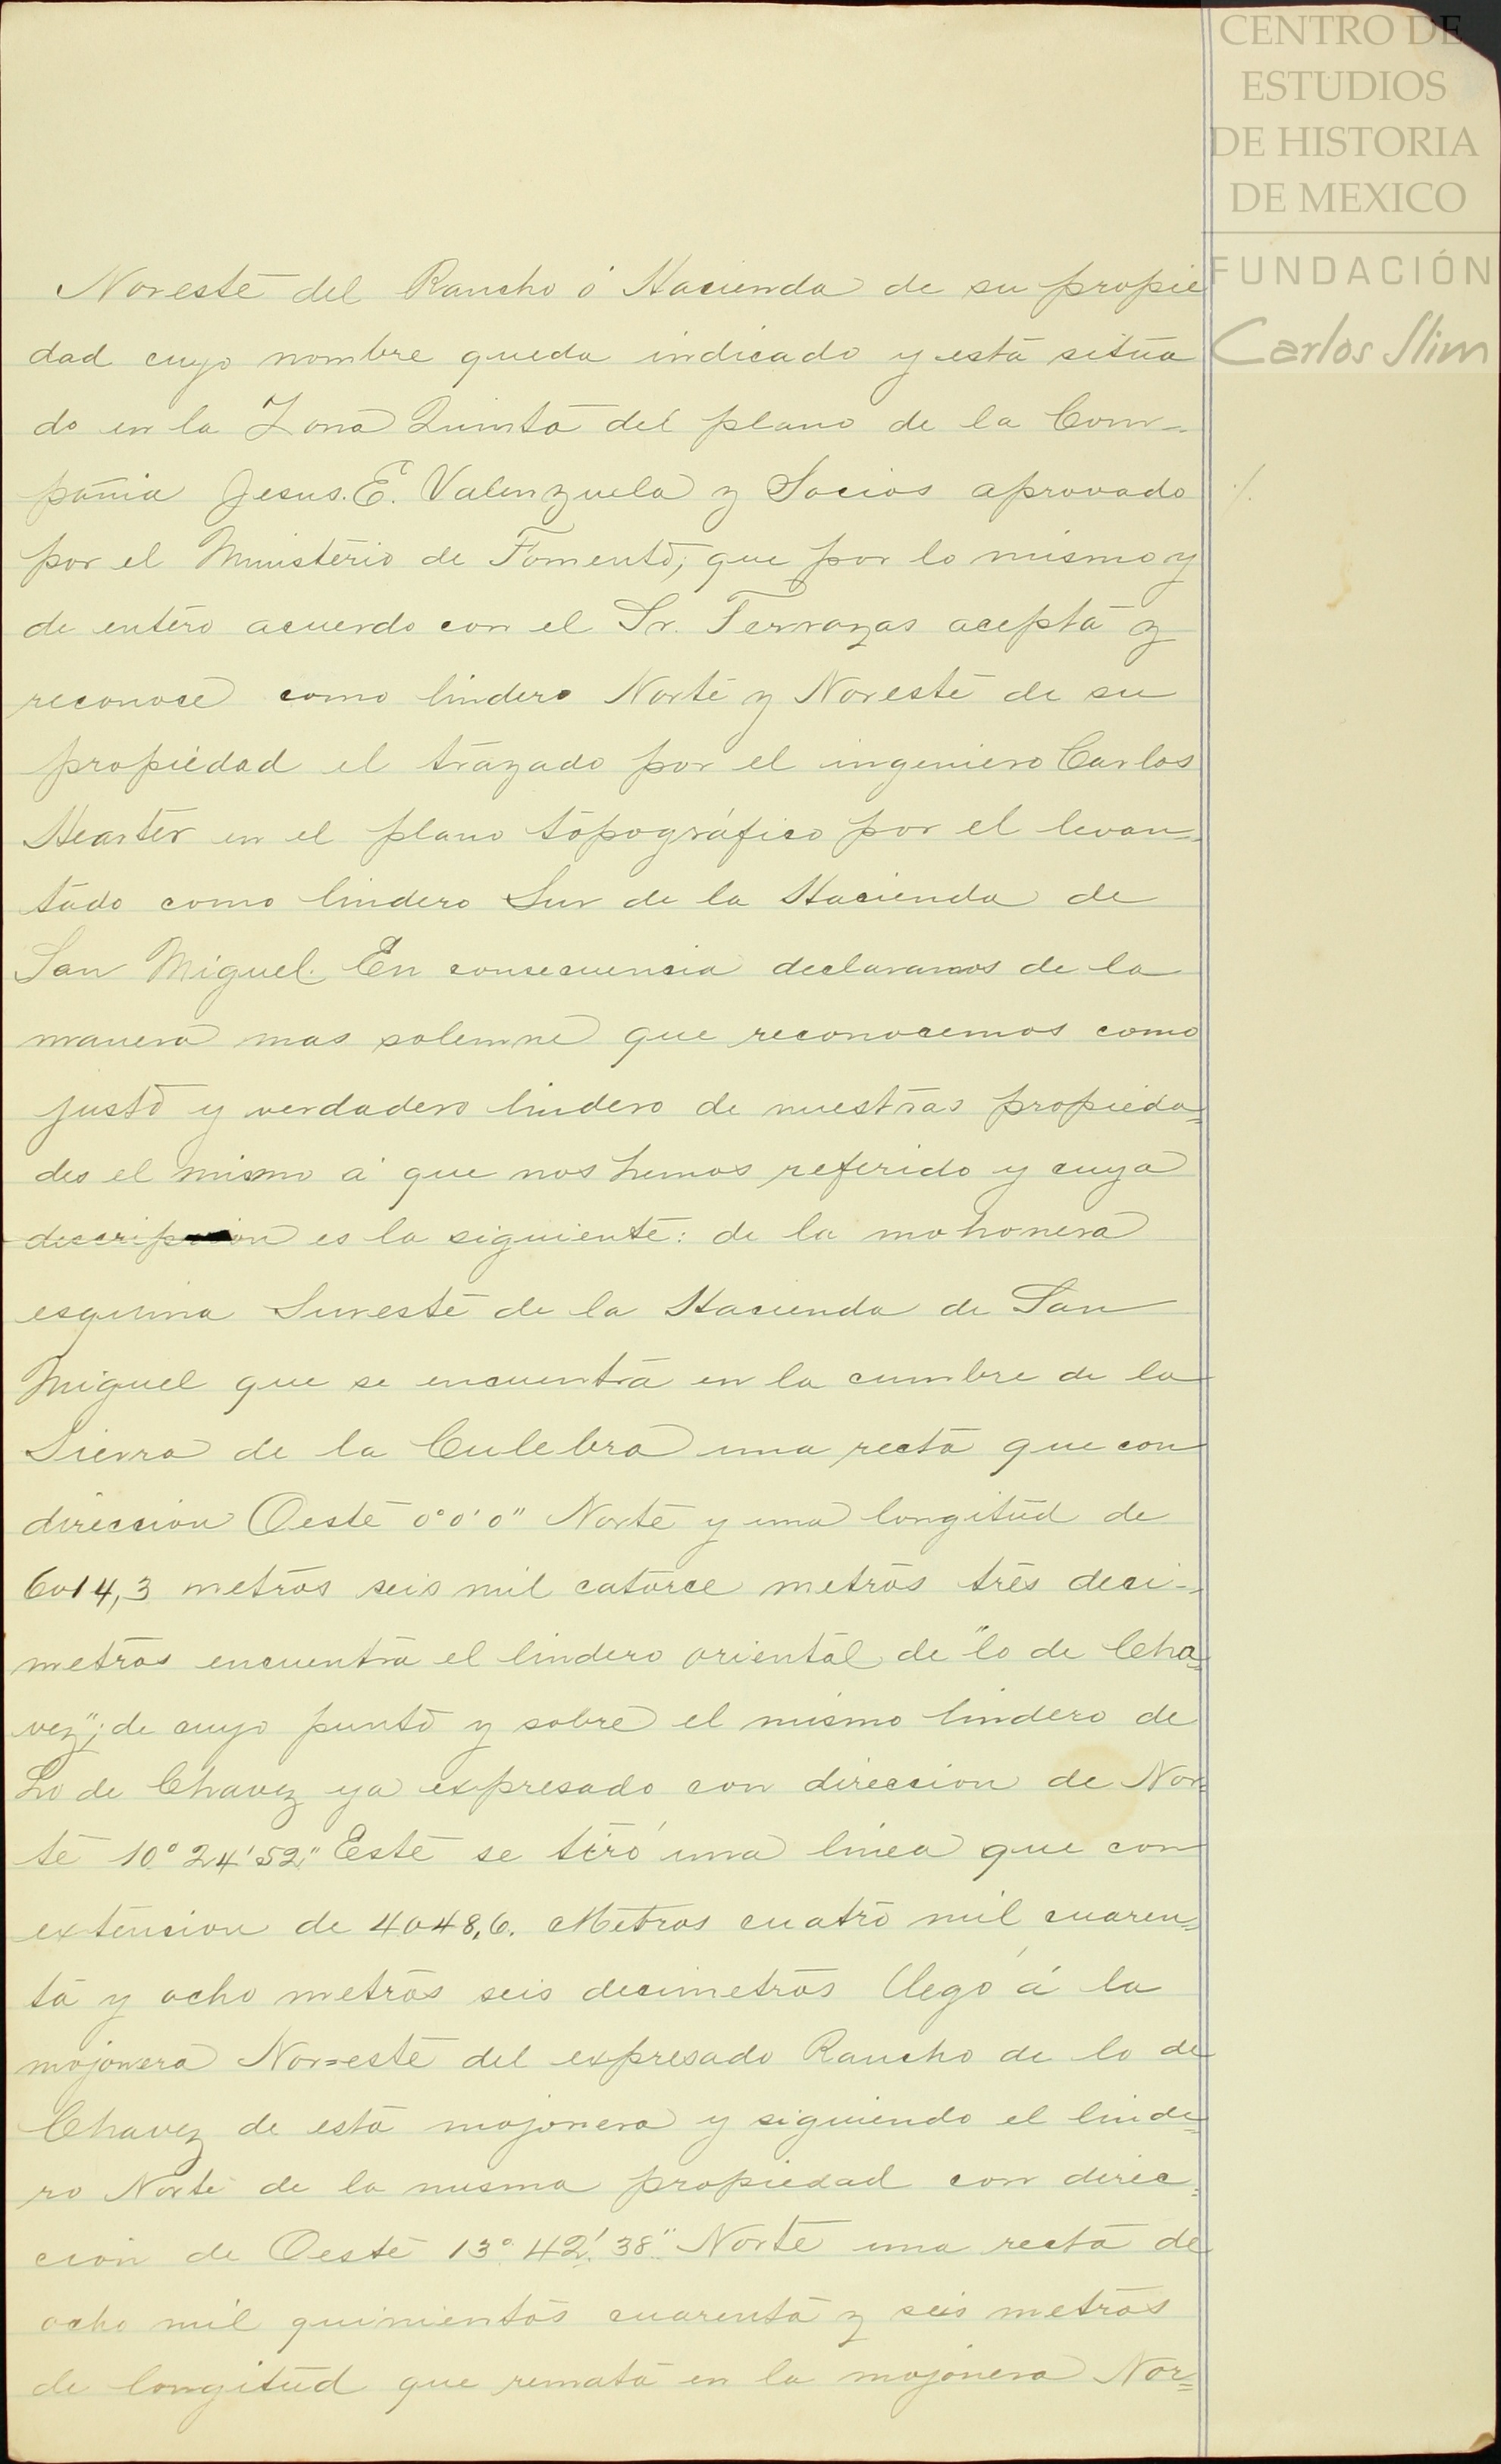 CENTRO DE
ESTUDIOS
DE HISTORIA
DE MEXICO
FUNDACIÓN
Carlos Slim
Noreste del Rancho ó Hacienda de su propie
dad cuyo nombre queda indicado y está situa
do en la Zona Quinta del plano de la Com-
pañia Jesus. E. Valenzuela y Socios aprovado
por el Ministerio de Fomento; que por lo mismo y
de entero acuerdo con el Sr. Terrazas acepta y
reconoce como lindero Norte y Noreste de su
propiedad el trazado por el ingeniero Carlos
Hearter en el plano topográfico por el levan=
tado como lindero Sur de la Hacienda de
San Miguel. En consecuencia declaramos de la
manera mas solemne que reconocemos como
justo y verdadero lindero de nuestras propieda=
des el mismo á que nos hemos referido y cuya
descripcion es la siguiente: de la mohonera
esquina Sureste de la Hacienda de San
Miguel que se encuentra en la cumbre de la
Sierra de la Culebra una recta que con
direccion Oeste 0° 0' 0" Norte y una longitud de
6014,3 metros seis mil catorce metros tres deci-
metros encuentra el lindero oriental de "lo de Cha=
vez"; de cuyo punto y sobre el mismo lindero de
Lo de Chavez ya expresado con direccion de Nor=
te 10° 24' 52," Este se tiró una linea que con
extension de 4048,6. Metros cuatro mil cuaren=
ta y ocho metros seis decimetros llegó á la
mojonera Nor=este del expresado Rancho de lo de
Chavez de esta mojonera y siguiendo el linde=
ro Norte de la misma propiedad con direc=
cion de Oeste 13° 42' 38" Norte una recta de
ocho mil quinientos cuarenta y seis metros
de longitud que remata en la mojonera Nor=